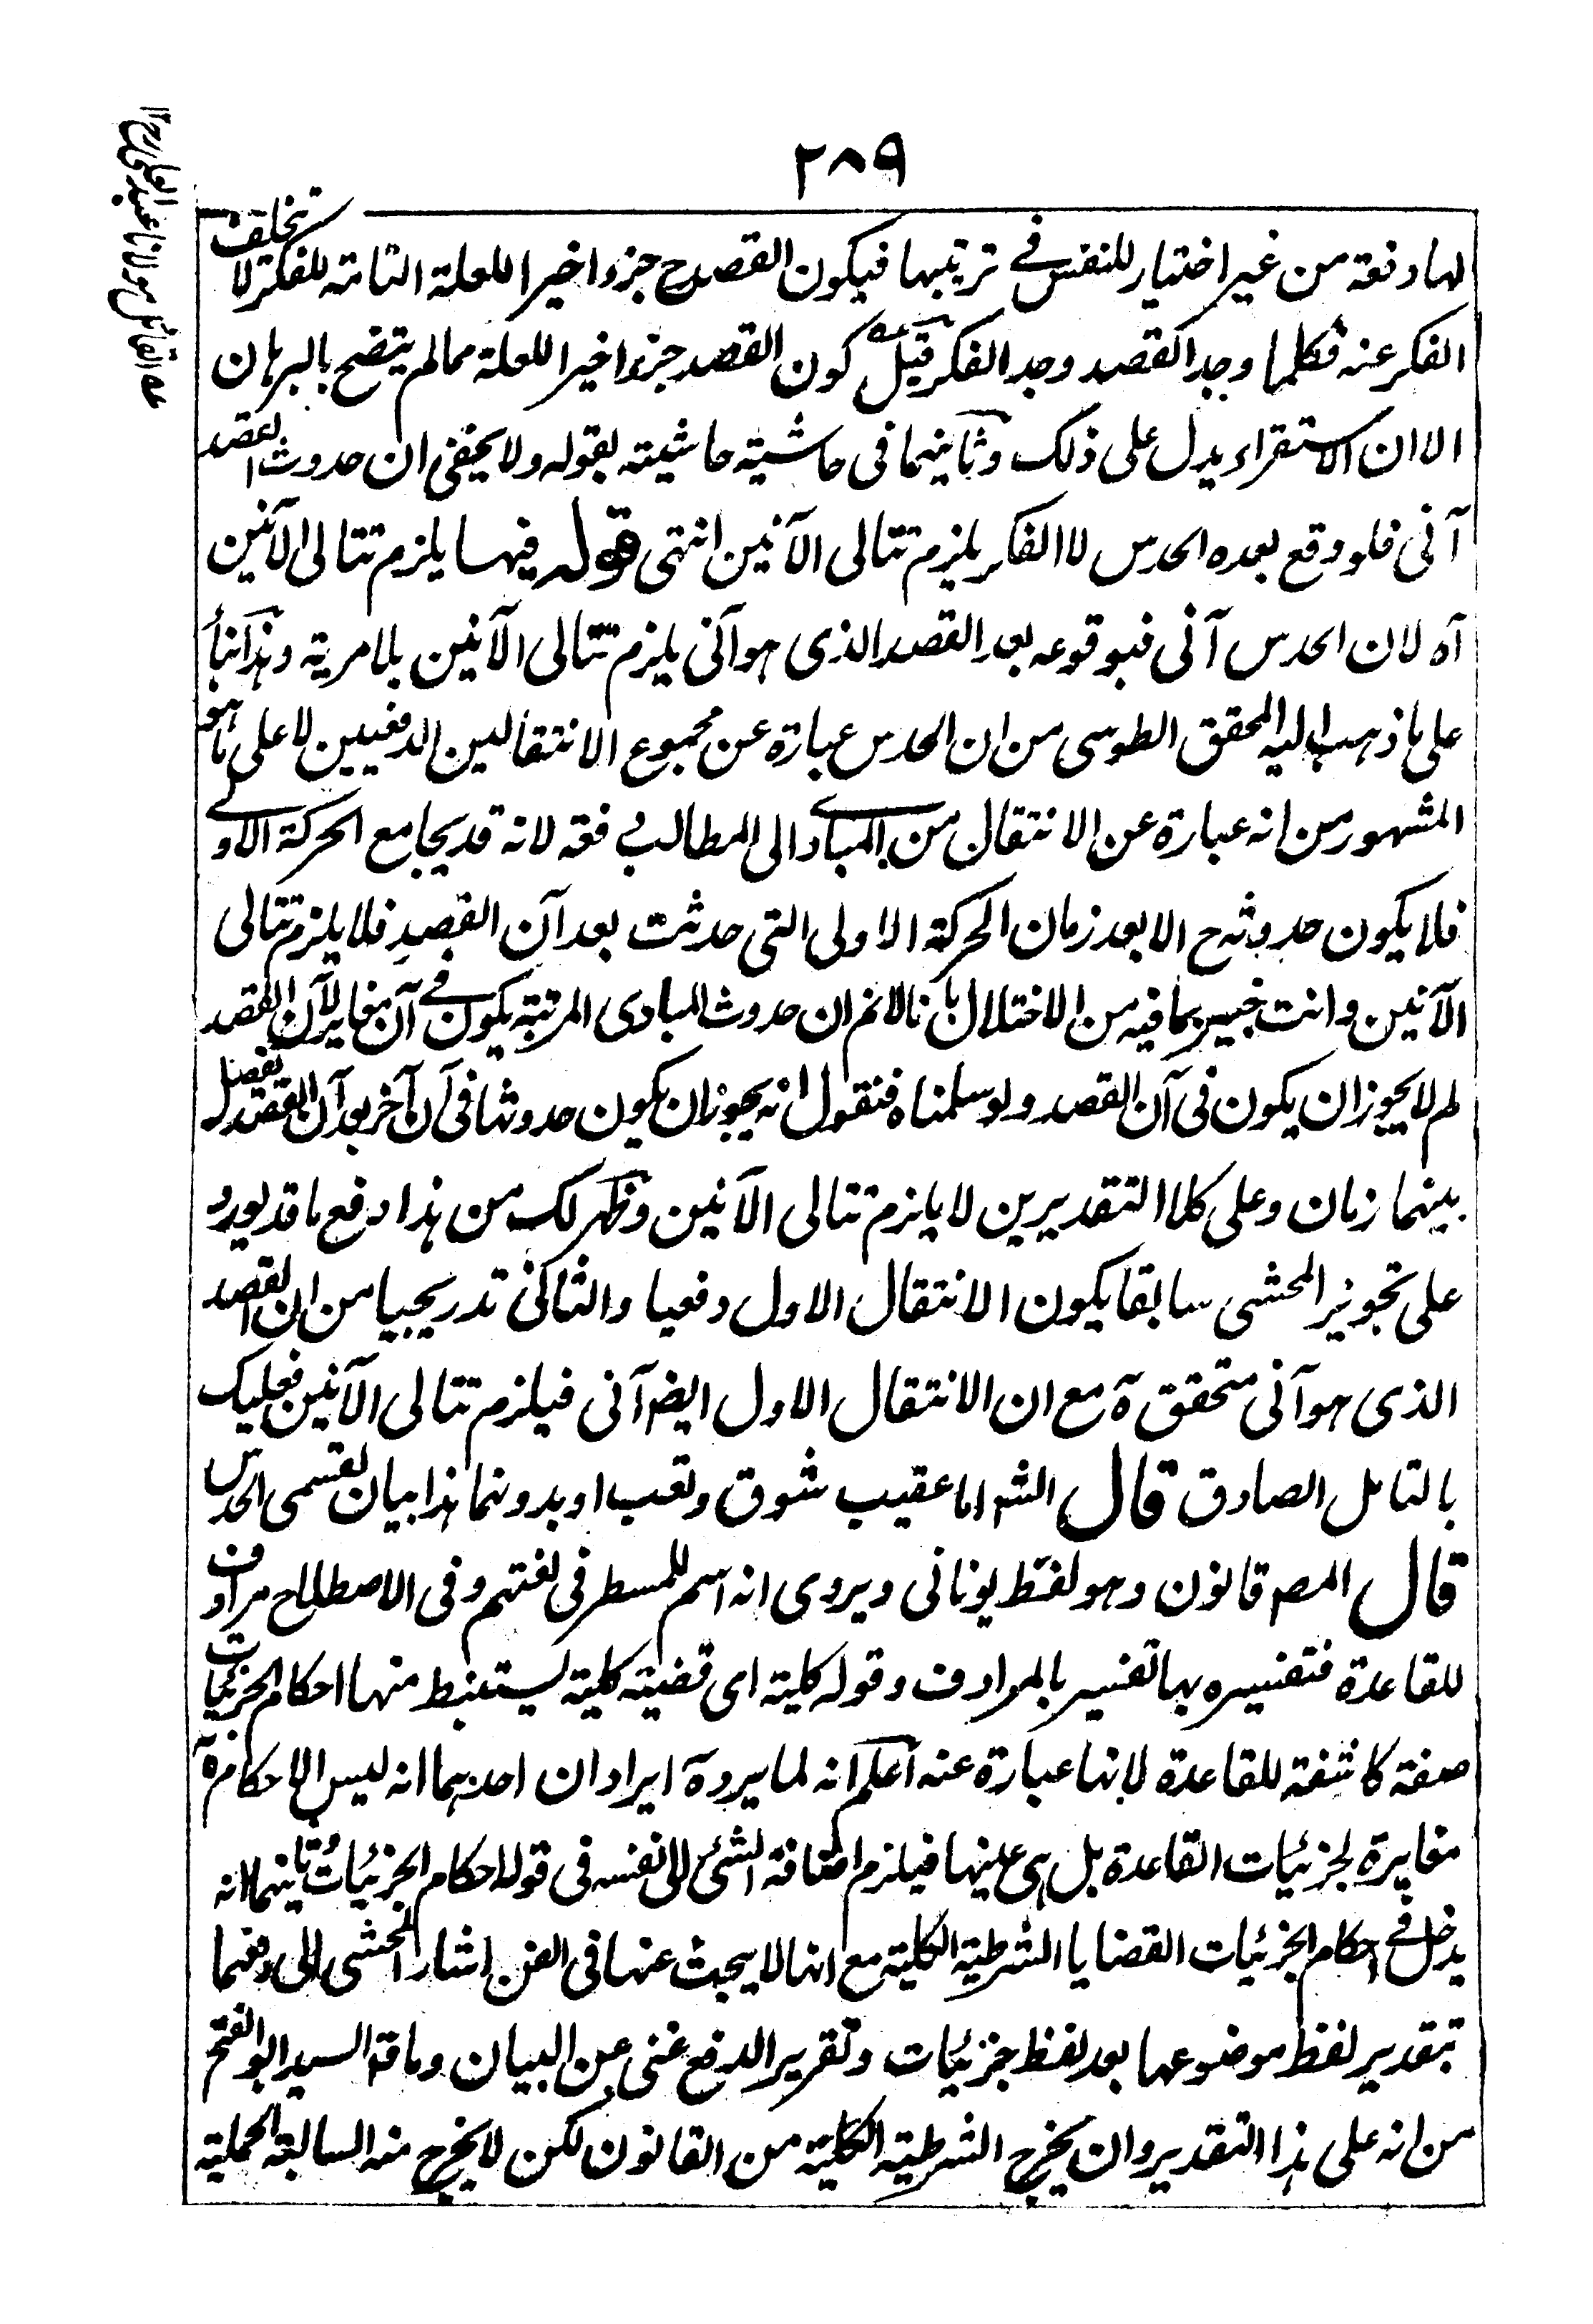 ٢٨٩
لها دفعة من غير اختيار للنفس فى ترتيبها فيكون القصد ح جزءا اخيرا للعلة التامة للفكر لا تخلف
الفكر عنه فكلما وجد القصد وجد الفكر قيل عه كون القصد جزءا اخيرا للعلة مما لم يتضح بالبرهان
الا ان الاستقراء يدل على ذلك وثانيهما فى حاشية حاشيته بقوله ولا يخفى ان حدوث القصد
آنى فلو وقع بعده الحدس لا الفكر يلزم تتالى الآنين انتهى قوله فيها يلزم تتالى الآنين
آه لان الحدس آنى فبوقوعه بعد القصد الذى هو آنى يلزم تتالى الآنين بلا مرية وهذا بناءً
على ما ذهب اليه المحقق الطوسى من ان الحدس عبارة عن مجموع الانتقالين الدفعيين لا على ما هو
المشهور من انه عبارة عن الانتقال من المبادى الى المطالب دفعة لانه قد يجامع الحركة الاولى
فلا يكون حدوثه ح الا بعد زمان الحركة الاولى التى حدثت بعد آن القصد فلا يلزم تتالى
الآنين وانت خبير بما فيه من الاختلال بانا لا نم ان حدوث المبادى المرتبة يكون فى آن مغاير لآن القصد
لم لا يجوز ان يكون فى آن القصد ولو سلمناه فنقول انه يجوز ان يكون حدوثها فى آن آخر بعد آن القصد يفصل
بينهما زمان وعلى كلا التقديرين لا يلزم تتالى الآنين وظهر لك من هذا دفع ما قد يورد
على تجويز المحشى سابقا بكون الانتقال الاول دفعيا والثانى تدريجيا من ان القصد
الذى هو آنى متحقق ة مع ان الانتقال الاول ايضا آنى فيلزم تتالى الآنين فعليك
بالتامل الصادق قال الشه اما عقيب شوق وتعب او بدونهما هذا بيان لقسمى الحدس
قال المصه قانون وهو لفظ يونانى ويروى انه اسم للمسطر فى لغتهم وفى الاصطلاح مرادف
للقاعدة فتفسيره بها تفسير بالمرادف وقوله كلية اى قضية كلية يستنبط منها احكام الجزئيات
صفة كاشفة للقاعدة لانها عبارة عنه اعلم انه لما يرد ة ايرادان احدهما انه ليس الاحكام ة
مغايرة لجزئيات القاعدة بل هى عينها فيلزم اضافة الشئ الى نفسه فى قوله احكام الجزئيات وثانيهما انه
يدخل فى احكام الجزئيات القضايا الشرطية الكلية مع انها لا يبحث عنها فى الفن اشار المحشى الى دفعهما
بتقدير لفظ موضوعها بعد لفظ جزئيات وتقرير الدفع غنى عن البيان وما قه السيد ابو الفتح
من انه على هذا التقدير وان يخرج الشرطية الكلية من القانون لكن لا يخرج منه السالبة الحملية
عه القائل مولانا عبد